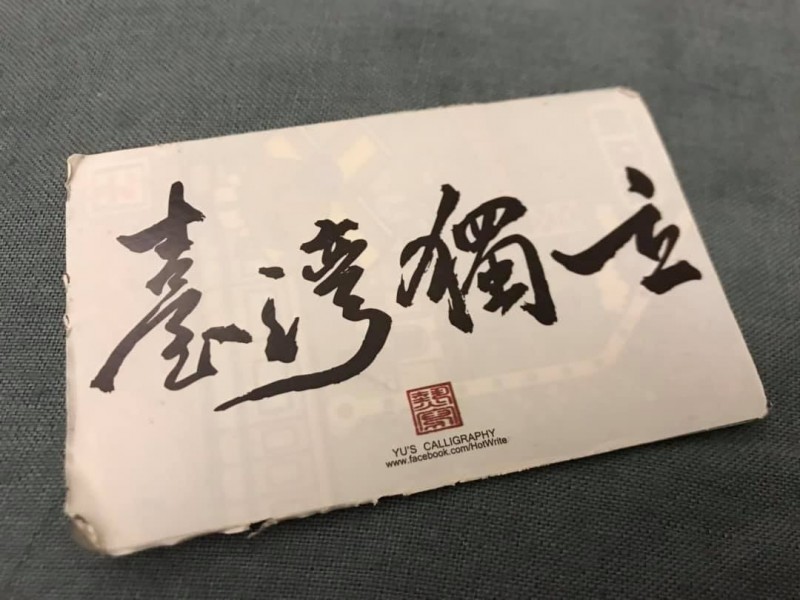 臺灣獨立
YU'S CALLIGRAPHY
www.facebook.com/HotWrite